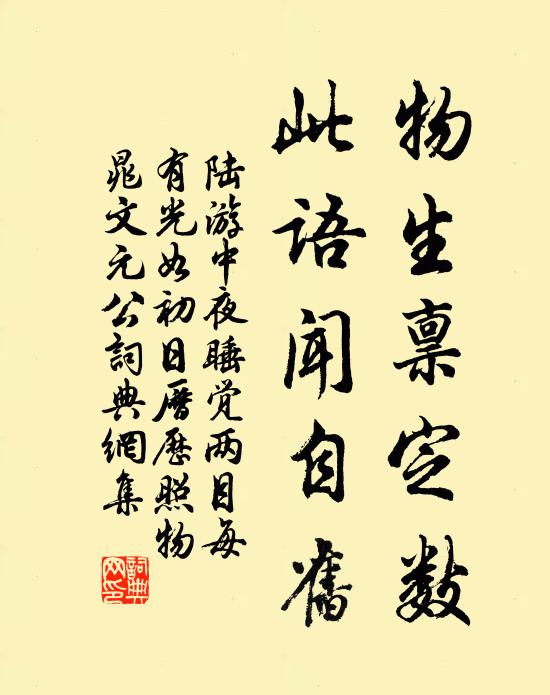 物生禀定数
此语闻自舊
陆游中夜睡觉两目每
有光如初日曆歷照物
晁文元公詞典網集
詞典网印